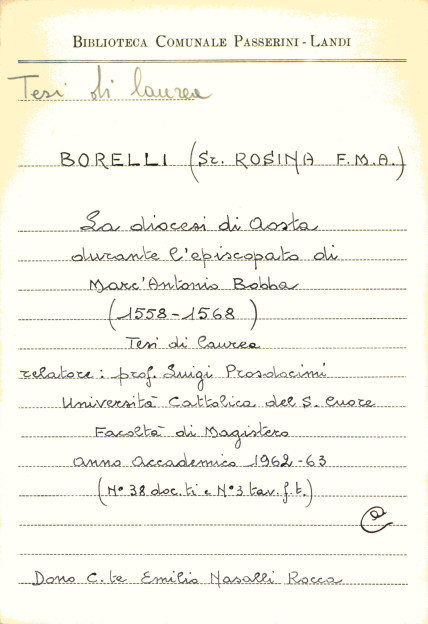 BIBLIOTECA COMUNALE PASSERINI - LANDI
Tesi di laurea
BORELLI (Sr. ROSINA F.M.A.)
La diocesi di Aosta
durante l'episcopato di
Marc'Antonio Bobba
(1558-1568)
Tesi di laurea
relatore: prof. Luigi Prosdocimi
Università Cattolica del S. Cuore
Facoltà di Magistero
anno accademico 1962-63
(N° 38 doc.ti e N° 3 tav. f.t.)
Dono C.te Emilio Nasalli Rocca